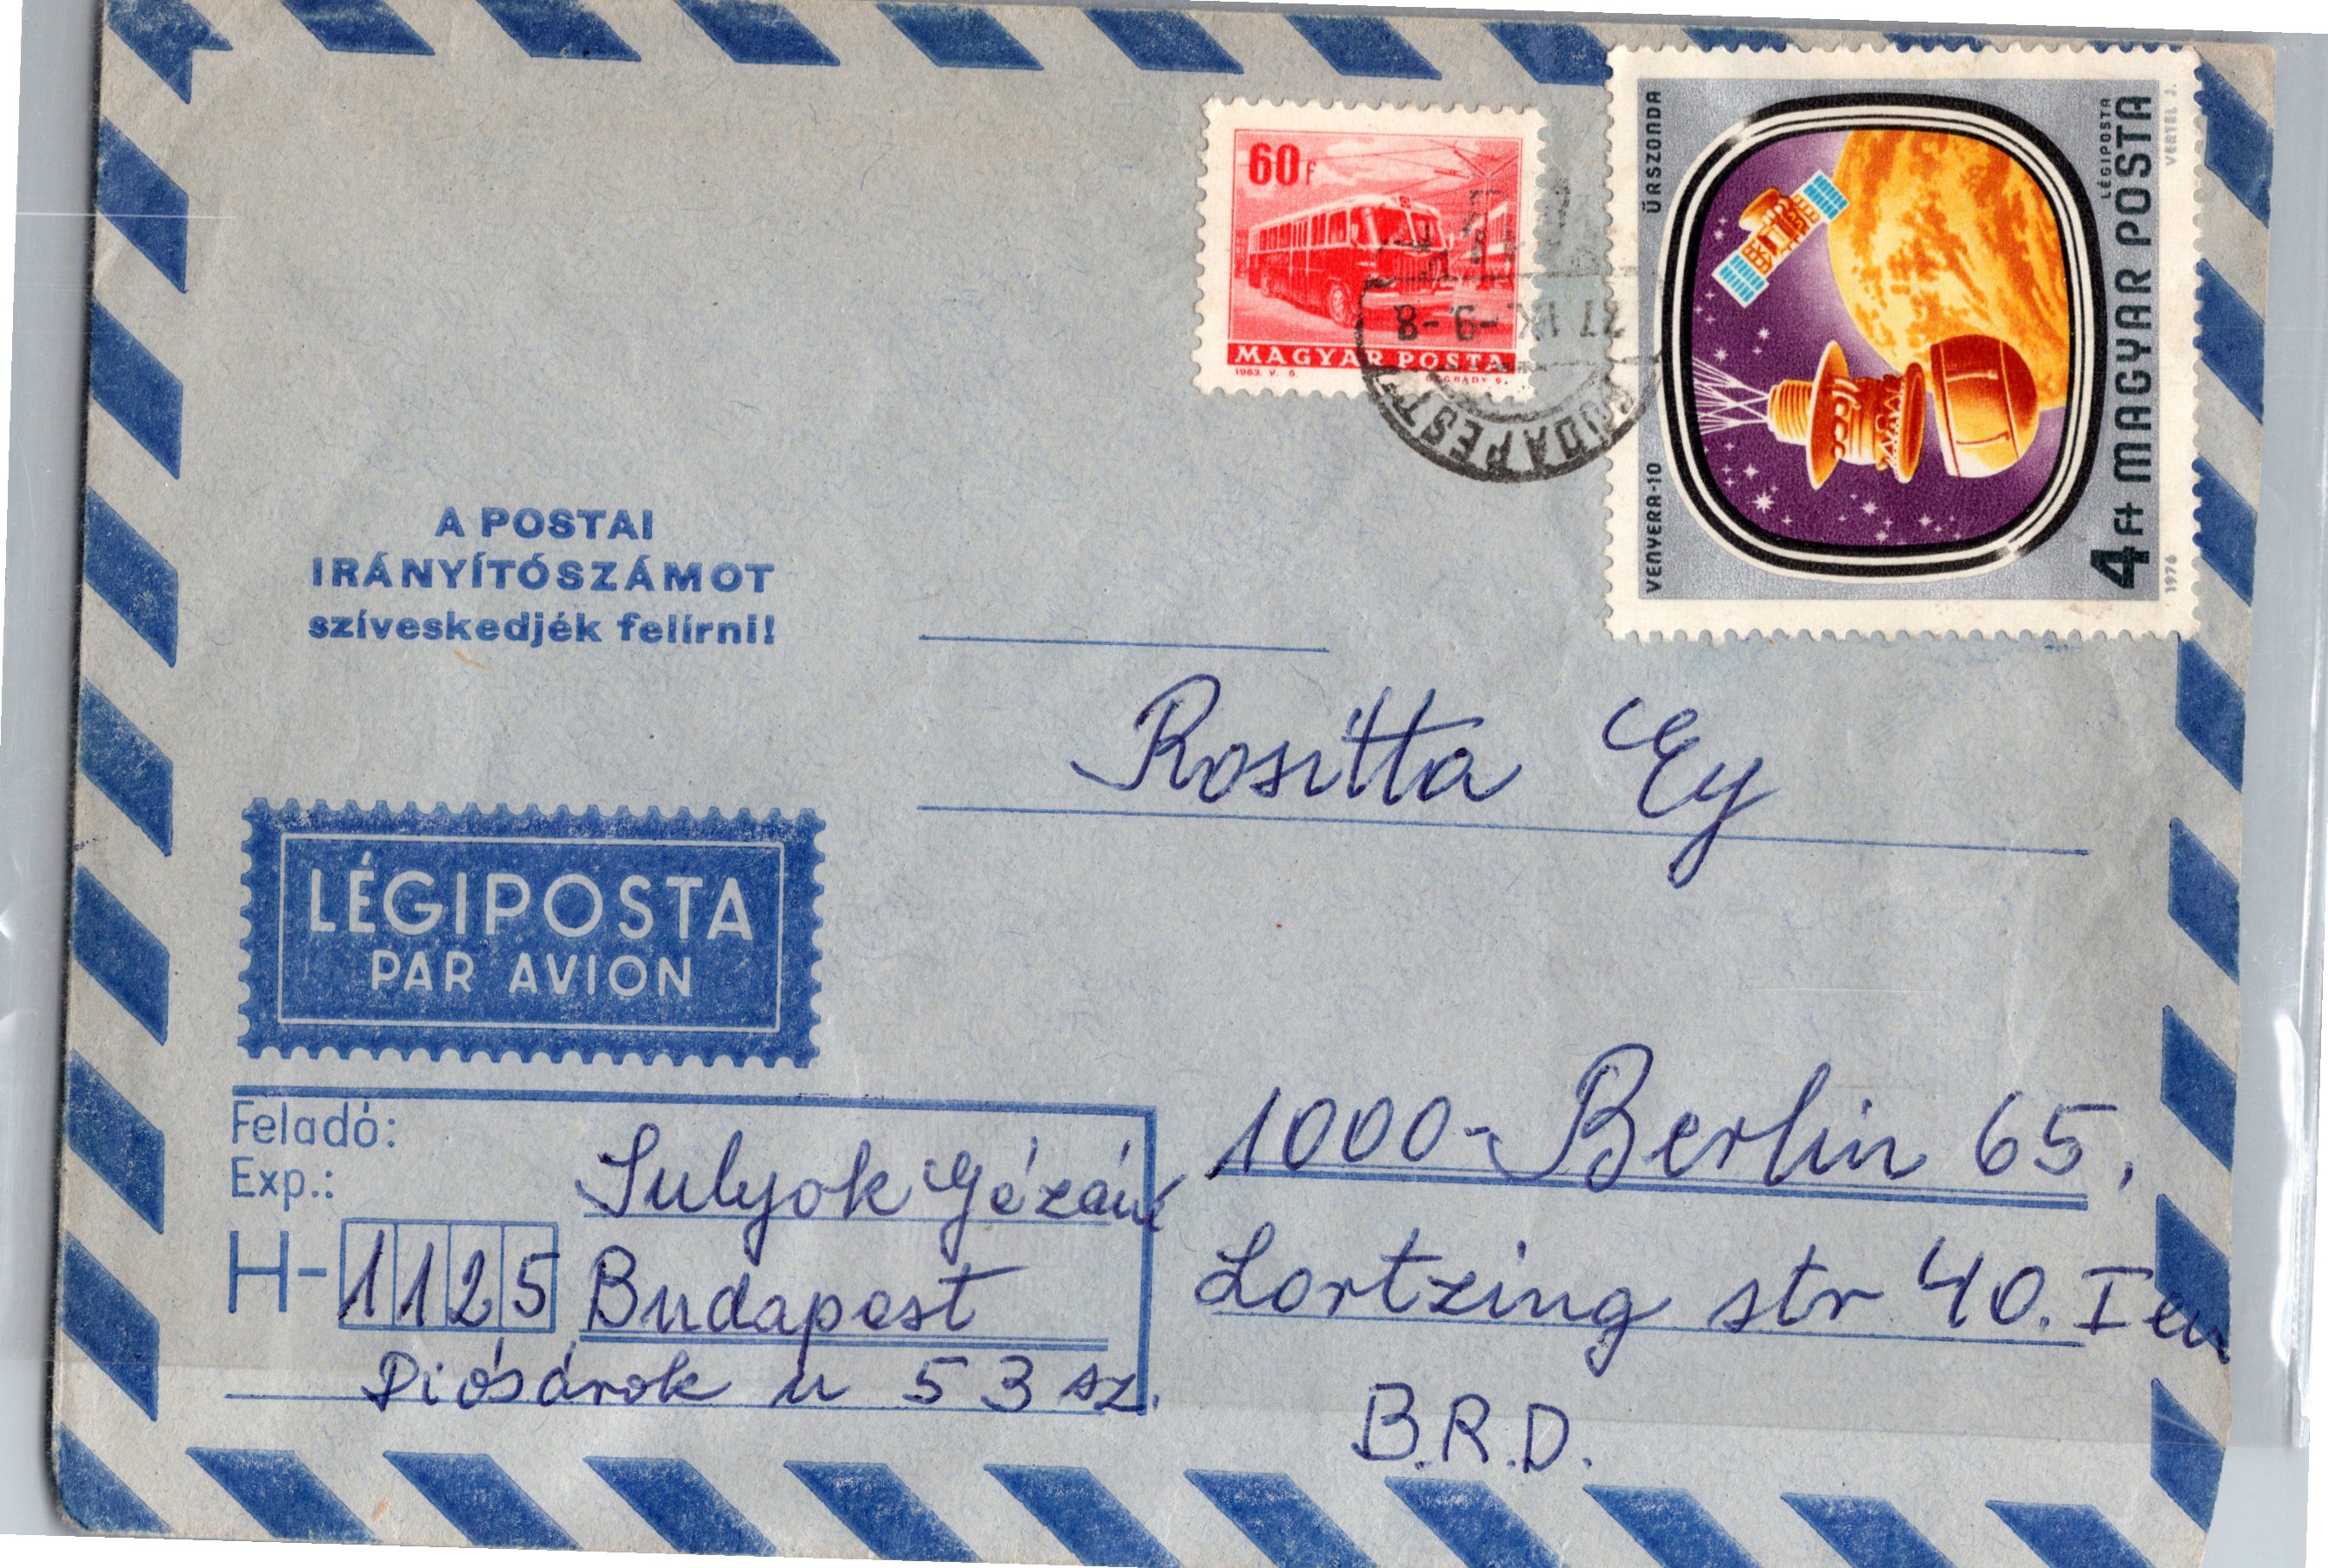 60f
MAGYAR POSTA
1963. V. 6.
LÉGRÁDY S.
BUDAPEST
ŰRSZONDA
VENYERA-10
4 Ft MAGYAR POSTA
LÉGIPOSTA
VERTEL J.
1976
A POSTAI
IRÁNYÍTÓSZÁMOT
szíveskedjék felírni!
Rositta Ey
LÉGIPOSTA
PAR AVION
1000-Berlin 65.
Lortzing str 40. I em
B.R.D.
Feladó:
Exp.:
Sulyok Gézáné
H-1125 Budapest
Diósárok u 53 sz.